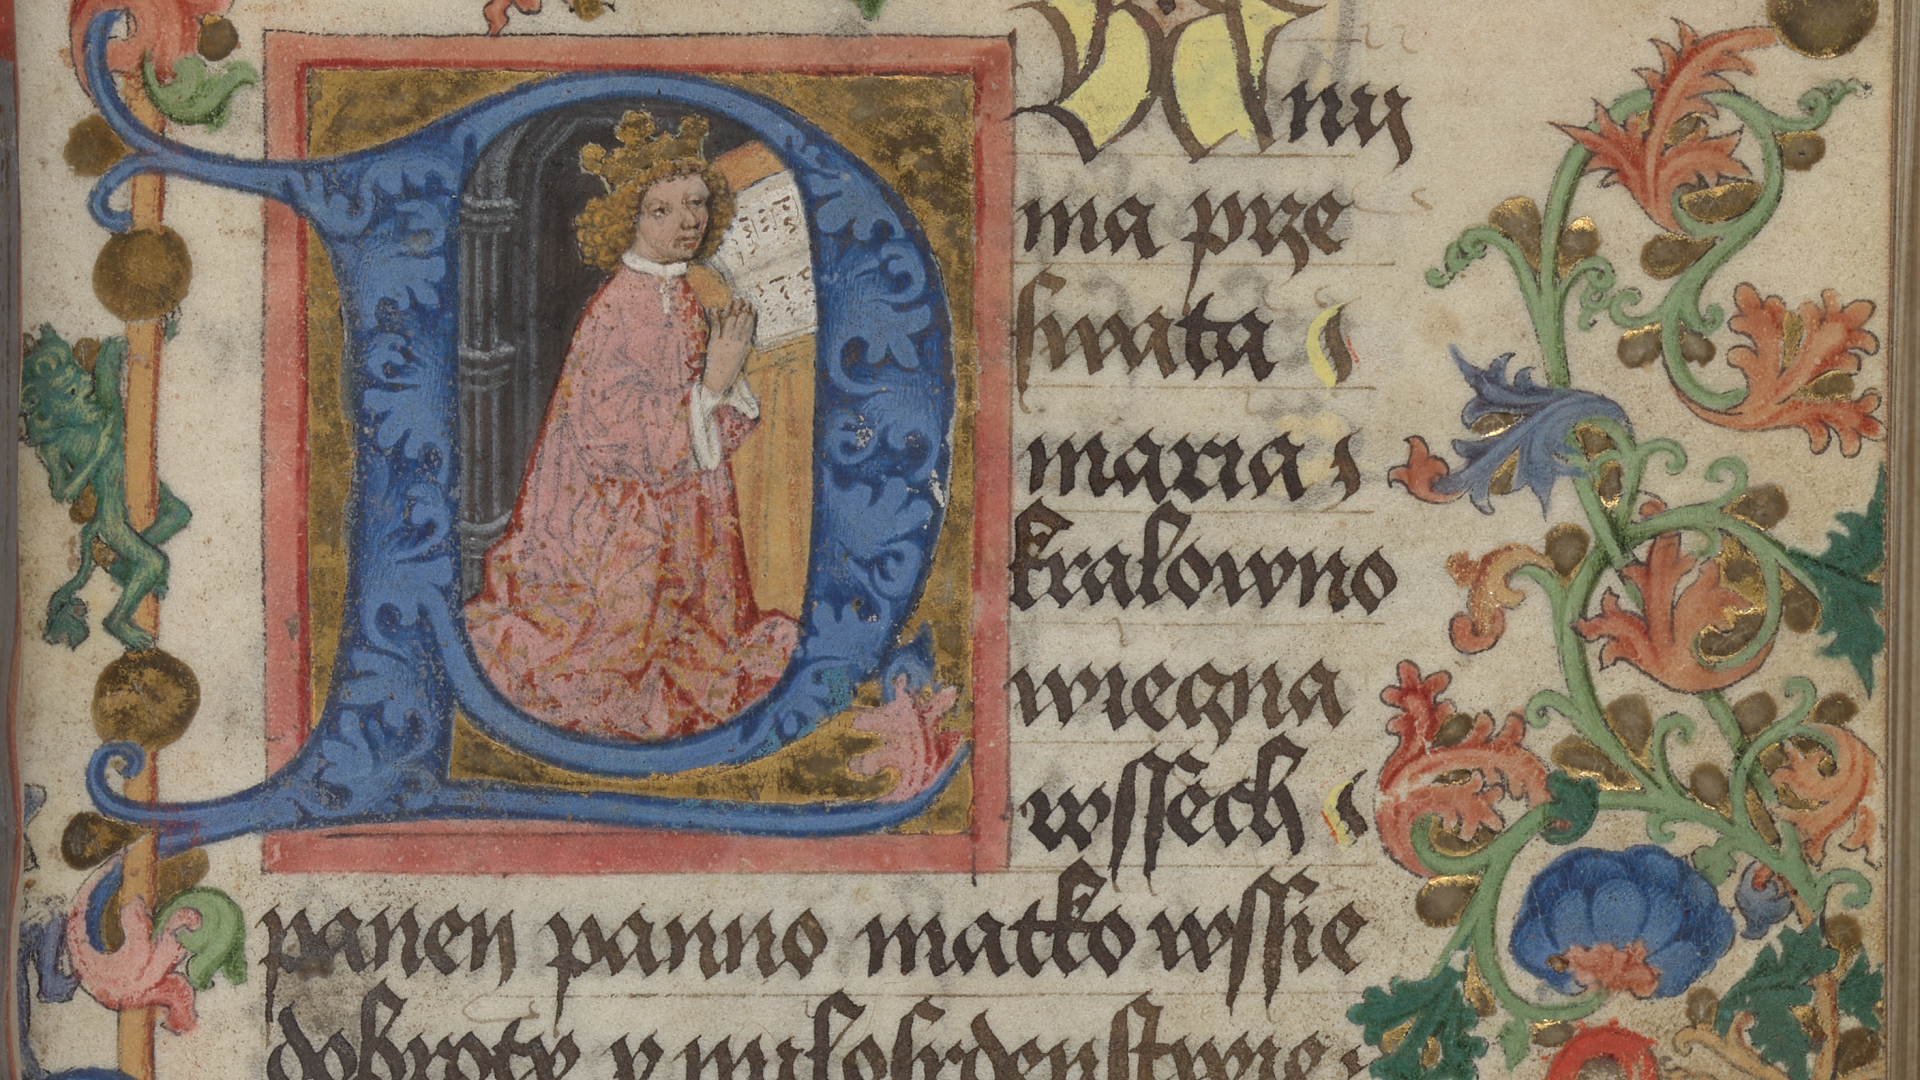 PAny
ma prze
swata /
maria /
kralowno
wiegna
wssech /
panen panno matko wssie
dobroty y milosrdenstwie /